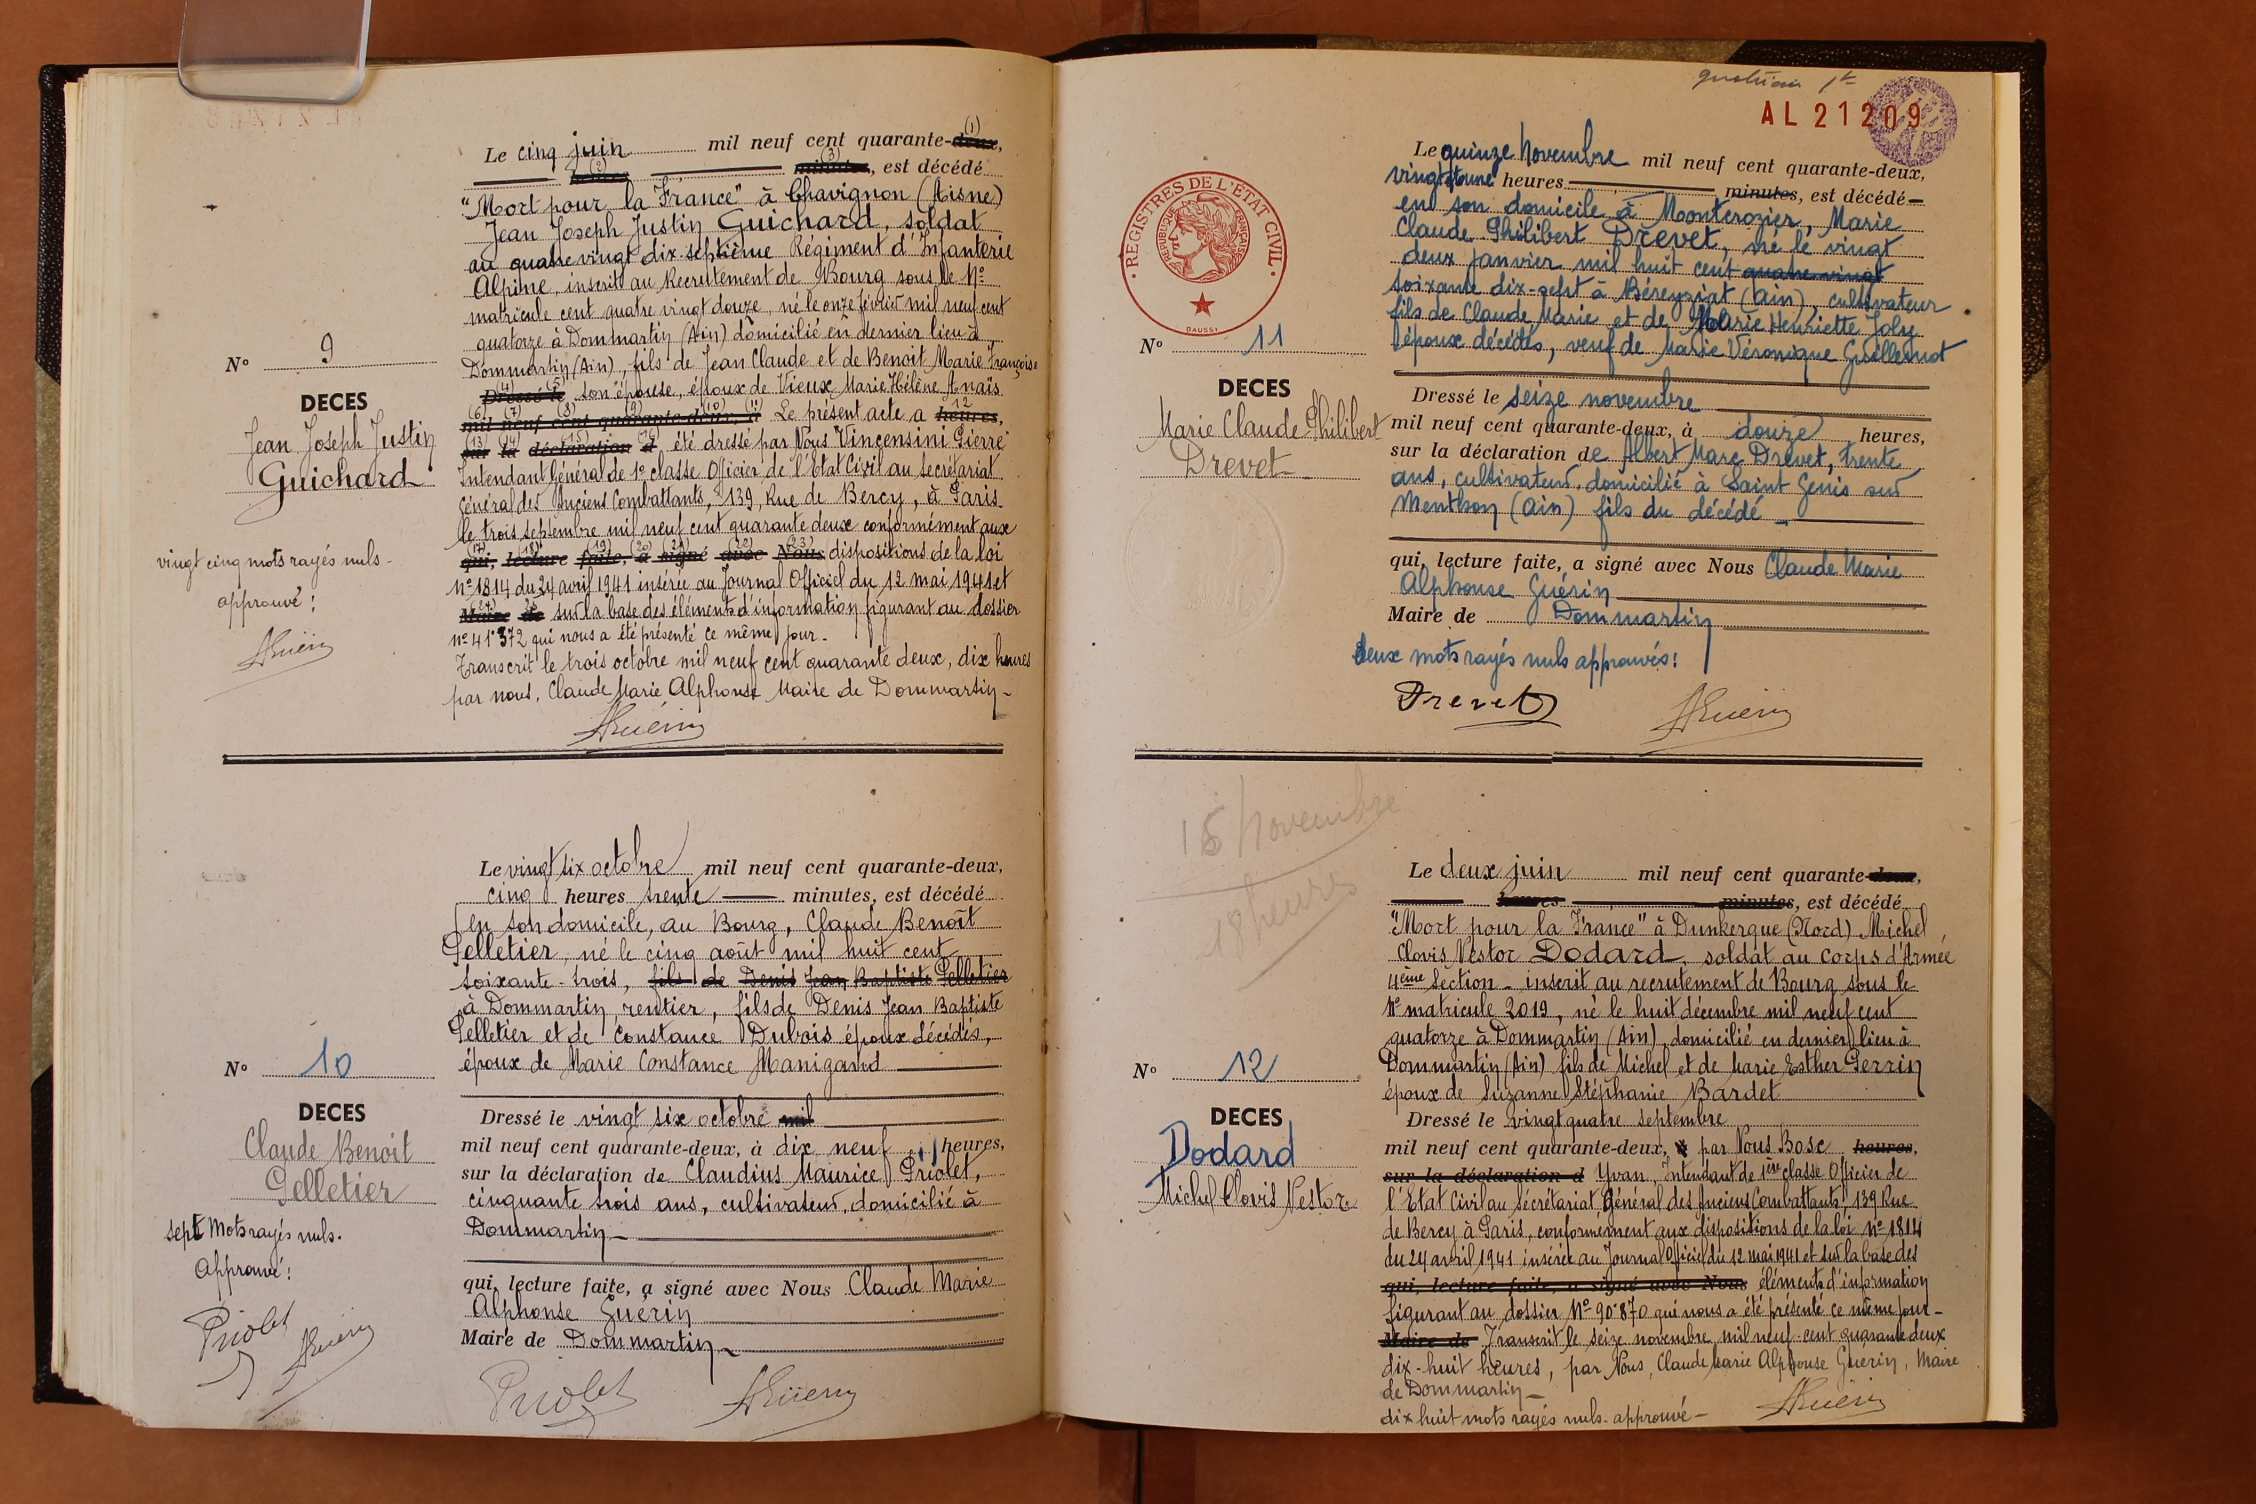 Le cinq juin mil neuf cent quarante-deux, (1)
heures (2) minutes (3), est décédé
"Mort pour la France" à Chavignon (Aisne)
Jean Joseph Justin Guichard, soldat
au quatre vingt dix-septième Régiment d'Infanterie
Alpine, inscrit au Recrutement de Bourg sous le N°
matricule cent quatre vingt douze, né le onze février mil neuf cent
quatorze à Dommartin (Ain) domicilié en dernier lieu à
N° 9
Dommartin (Ain), fils de Jean Claude et de Benoit Marie Françoise
DECES
Dressé le (4) (5) son épouse, époux de Vieux Marie Hélène Anaïs
Jean Joseph Justin
Guichard
(6) (7) (8) (9) (10) (11) 12
mil neuf cent quarante-deux, à Le présent acte a heures,
(13) (14) (15) (16)
sur la déclaration d été dressé par Nous Vincensini Pierre
Intendant Général de 1e classe Officier de l'Etat Civil au Secrétariat
Général des Anciens Combattants, 139, Rue de Bercy, à Paris
le trois septembre mil neuf cent quarante deux conformément aux
(17) (18) (19) (20) (21) (22) (23)
qui, lecture faite, a signé avec Nous dispositions de la loi
N° 1814 du 24 avril 1941 insérée au Journal Officiel du 12 mai 1941 et
Maire de sur la base des éléments d'information figurant au dossier
n° 41'372 qui nous a été présenté ce même jour.
Transcrit le trois octobre mil neuf cent quarante deux, dix heures
par nous, Claude Marie Alphonse Maire de Dommartin
AGuérin
vingt cinq mots rayés nuls
approuvé !
AGuérin
Le vingt six octobre mil neuf cent quarante-deux,
cinq heures trente minutes, est décédé
en son domicile, au Bourg, Claude Benoît
Pelletier, né le cinq août mil huit cent
soixante-trois, fils de Denis Jean Baptiste Pelletier
à Dommartin, rentier, fils de Denis Jean Baptiste
Pelletier et de Constance Dubois époux décédés,
époux de Marie Constance Manigand
N° 10
DECES
Claude Benoit
Pelletier
Dressé le vingt six octobre mil
mil neuf cent quarante-deux, à dix neuf heures,
sur la déclaration de Claudius Maurice Priolet,
cinquante trois ans, cultivateur, domicilié à
Dommartin
qui, lecture faite, a signé avec Nous Claude Marie
Alphonse Guérin
Maire de Dommartin
sept Mots rayés nuls.
Approuvé !
Priolet AGuérin
Priolet AGuérin
AL 21209
Le quinze Novembre mil neuf cent quarante-deux,
vingt et une heures minutes, est décédé
en son domicile à Monterozier, Marie
Claude Philibert Drevet, né le vingt
deux janvier mil huit cent quatre vingt
soixante dix-sept à Béreyziat (Ain), cultivateur
fils de Claude Marie et de Marie Henriette Joly
époux décédés, veuf de Marie Véronique Guillemot
REGISTRES DE L'ETAT CIVIL
REPUBLIQUE FRANÇAISE
DAUSSI
N° 11
DECES
Marie Claude Philibert
Drevet
Dressé le seize novembre
mil neuf cent quarante-deux, à douze heures,
sur la déclaration de Albert Marc Drevet, trente
ans, cultivateur, domicilié à Saint Genis sur
Menthon (Ain) fils du décédé
qui, lecture faite, a signé avec Nous Claude Marie
Alphonse Guérin
Maire de Dommartin
deux mots rayés nuls approuvés !
Drevet AGuérin
15 novembre
18 heures
Le deux juin mil neuf cent quarante-deux,
heures minutes, est décédé
"Mort pour la France" à Dunkerque (Nord) Michel
Clovis Nestor Dodard, soldat au Corps d'Armée
4ème Section - inscrit au recrutement de Bourg sous le
N° matricule 2019, né le huit décembre mil neuf cent
quatorze à Dommartin (Ain), domicilié en dernier lieu à
Dommartin (Ain) fils de Michel et de Marie Esther Perrin
époux de Suzanne Stéphanie Bardet
N° 12
DECES
Dodard
Michel Clovis Nestor
Dressé le vingt quatre septembre
mil neuf cent quarante-deux, à par Nous Bosc heures,
sur la déclaration d Yvan, Intendant de 1ère classe Officier de
l'Etat Civil au Secrétariat Général des Anciens Combattants, 139 Rue
de Bercy à Paris, conformément aux dispositions de la loi N° 1814
du 24 avril 1941 insérée au Journal Officiel du 12 mai 1941 et sur la base des
qui, lecture faite, a signé avec Nous éléments d'information
figurant au dossier N° 90'870 qui nous a été présenté ce même jour
Maire de Transcrit le seize novembre mil neuf-cent quarante deux
dix-huit heures, par Nous, Claude Marie Alphonse Guérin, Maire
de Dommartin
dix huit mots rayés nuls. approuvé
AGuérin